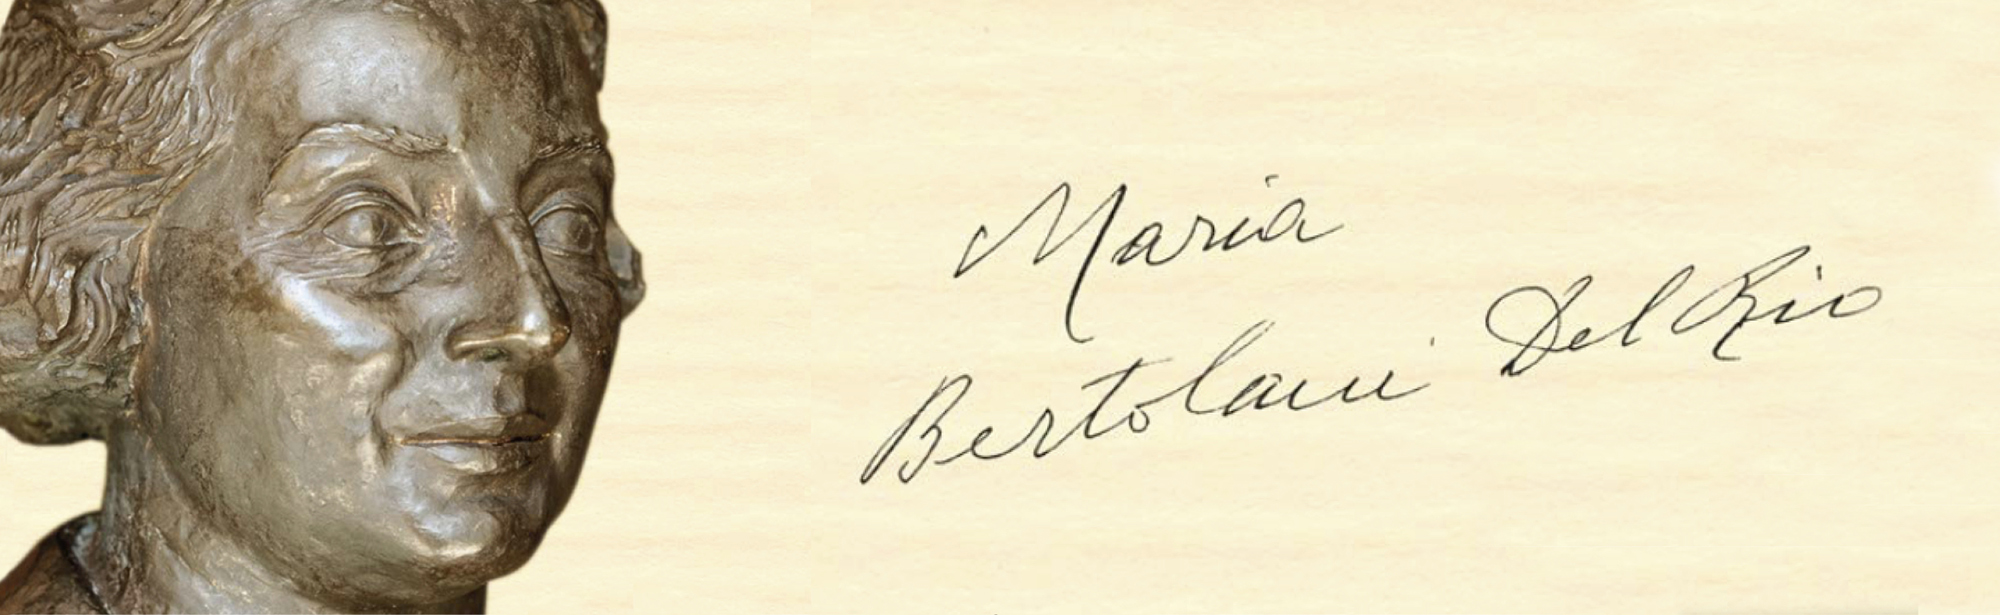 Maria
Bertolani Del Rio